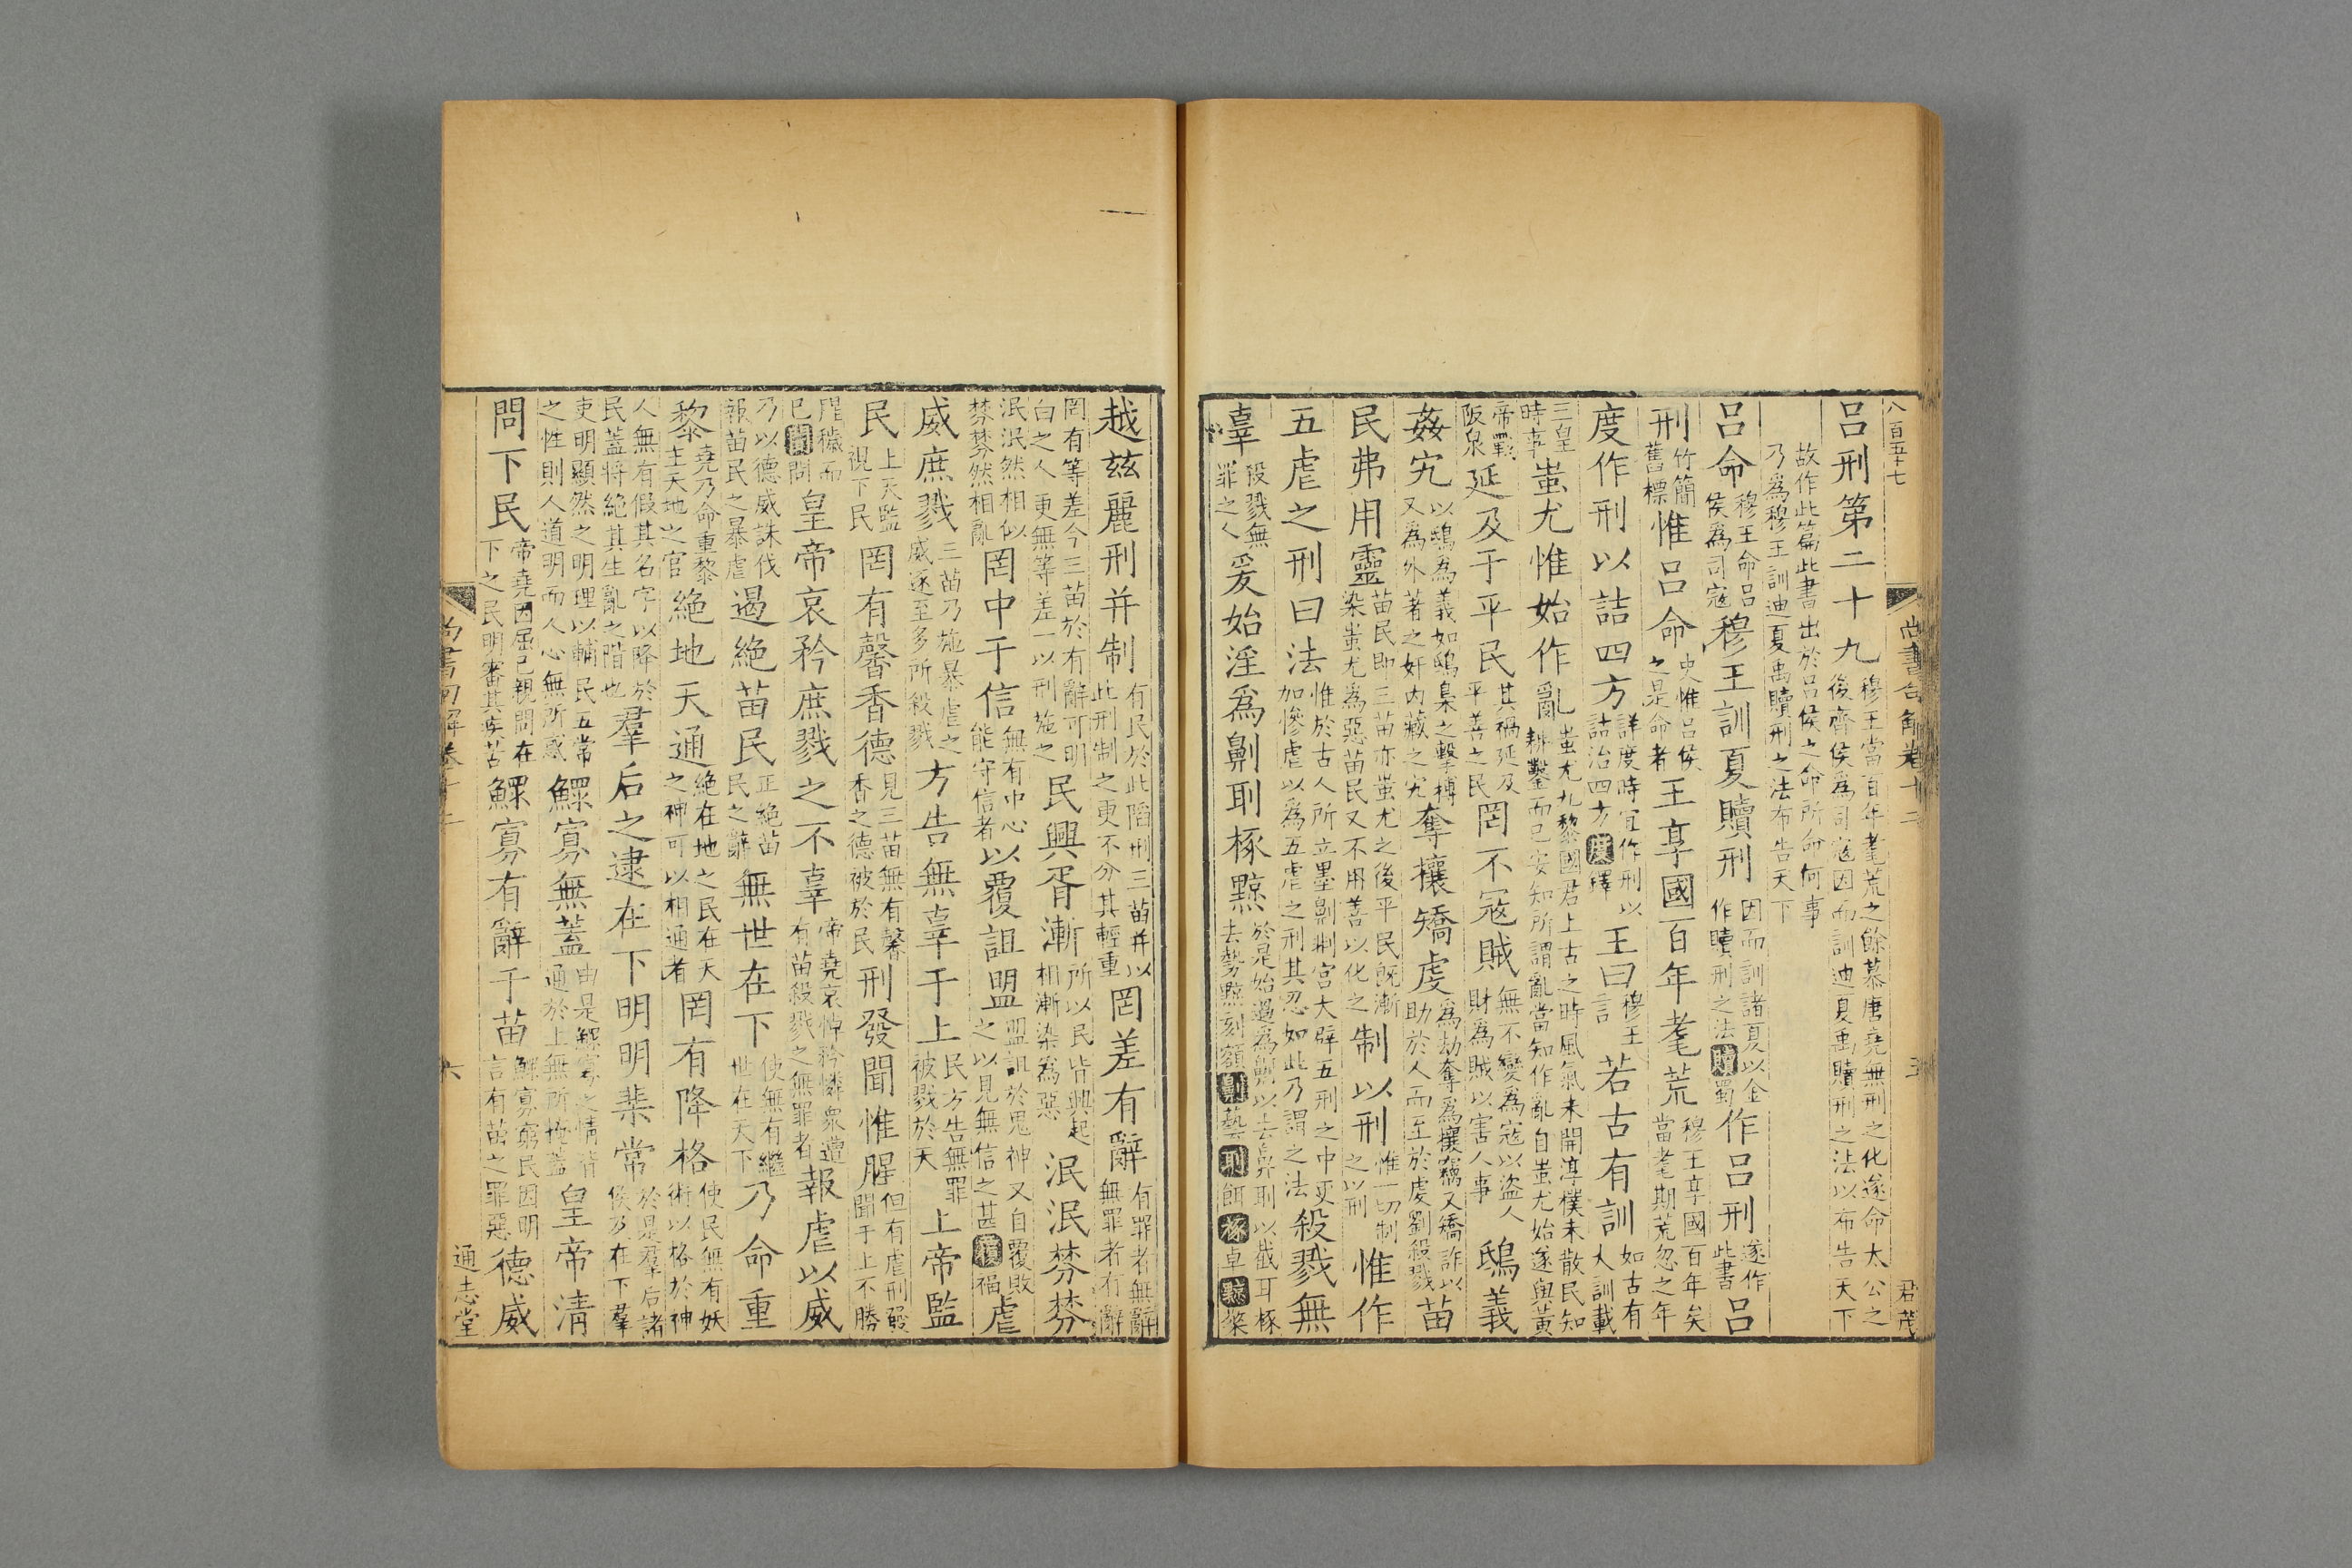 八百五十七　尚書句解卷十二　五　君茂
呂刑第二十九穆王當百年耄荒之餘慕唐堯無刑之化遂命太公之後齊侯爲司寇因而訓迪夏禹贖刑之法以布告天下
故作此篇此書出於呂侯之命所命何事乃爲穆王訓迪夏禹贖刑之法布告天下
呂命穆王命呂侯爲司寇穆王訓夏贖刑因而訓諸夏以金作贖刑之法贖蜀作呂刑遂作此書呂
刑竹簡舊標惟呂命史惟呂侯之是命者王享國百年耄荒穆王享國百年矣當耄期荒忽之年
度作刑以詰四方詳度時宜作刑以詰治四方度鐸王曰穆王言若古有訓如古有大訓載
三皇時事蚩尤惟始作亂蚩尤九黎國君上古之時風氣未開淳樸未散民知耕鑿而已安知所謂亂當知作亂自蚩尤始遂與黃
帝戰阪泉延及于平民其禍延及平善之民罔不寇賊無不變爲寇以盜人財爲賊以害人事鴟義
姦宄以鴟爲義如鴟梟之擊搏又爲外著之奸内藏之宄奪攘矯虔爲劫奪爲攘竊又矯詐以助於人而至於虔劉殺戮苗
民弗用靈苗民即三苗亦蚩尤之後平民旣漸染蚩尤爲惡苗民又不用善以化之制以刑惟一切制之以刑惟作
五虐之刑曰法惟於古人所立墨劓剕宫大辟五刑之中更加慘虐以爲五虐之刑其忍如此乃謂之法殺戮無
辜殺戮無罪之人爰始淫爲劓刵椓黥於是始過爲劓以去鼻刵以截耳椓去勢黥刻額劓藝刵餌椓卓黥檠
越兹麗刑并制有民於此陷刑三苗并以此刑制之更不分其輕重罔差有辭有罪者無辭無罪者有辭
罔有等差今三苗於有辭可明白之人更無等差一以刑施之民興胥漸所以民皆興起相漸染爲惡泯泯棼棼
泯泯然相似棼棼然相亂罔中于信無有中心能守信者以覆詛盟盟詛於鬼神又自覆敗之以見無信之甚覆福虐
威庶戮三苗乃施暴虐之威遂至多所殺戮方告無辜于上民方告無罪被戮於天上帝監
民上天監視下民罔有馨香德見三苗無有馨香之德被於民刑發聞惟腥但有虐刑發聞于上不勝
腥穢而已聞問皇帝哀矜庶戮之不辜帝堯哀悼矜憐衆遭有苗殺戮之無罪者報虐以威
乃以德威誅伐報苗民之暴虐遏絶苗民正絶苗民之辭無世在下使無有繼世在天下乃命重
黎堯乃命重黎主天地之官絶地天通絶在地之民在天之神可以相通者罔有降格使民無有妖術以格於神
人無有假其名字以降於民蓋將絶其生亂之階也羣后之逮在下明明棐常於是羣后諸侯及在下羣
吏明顯然之明理以輔民五常之性則人道明而人心無所惑鰥寡無蓋由是鰥寡之情皆通於上無所掩蓋皇帝清
問下民帝堯因屈己親問在下之民明審其疾苦鰥寡有辭于苗鰥寡窮民因明言有苗之罪惡德威
尚書句解卷十二　六　通志堂